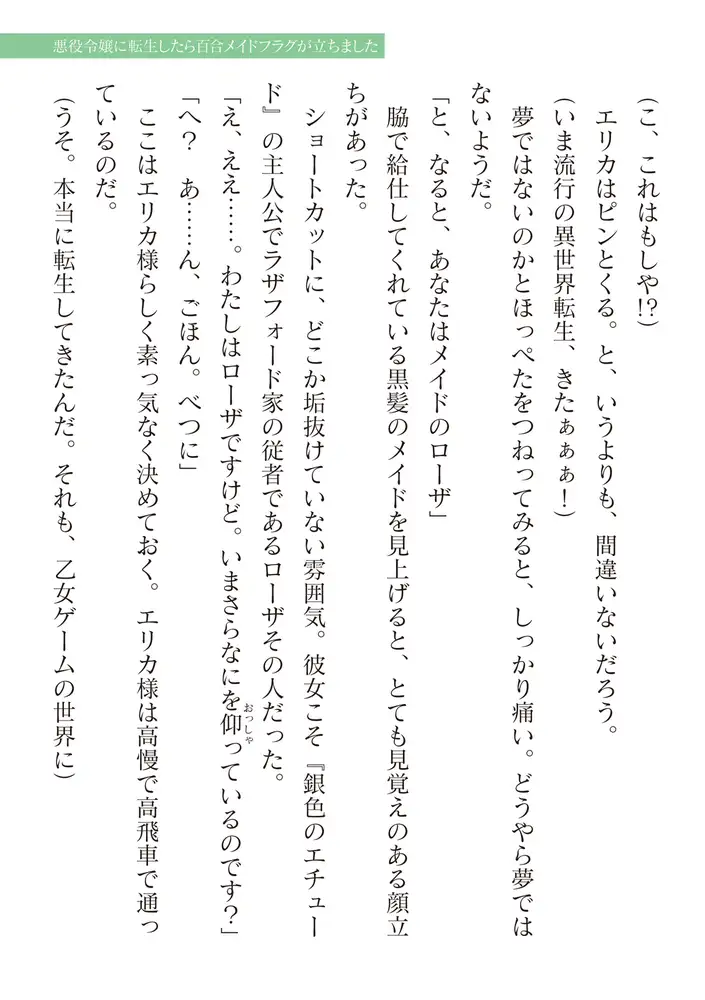 悪役令嬢に転生したら百合メイドフラグが立ちました
(こ、これはもしや!?)
エリカはピンとくる。と、いうよりも、間違いないだろう。
(いま流行の異世界転生、きたぁぁぁ!)
夢ではないのかとほっぺたをつねってみると、しっかり痛い。どうやら夢では
ないようだ。
「と、なると、あなたはメイドのローザ」
脇で給仕してくれている黒髪のメイドを見上げると、とても見覚えのある顔立
ちがあった。
ショートカットに、どこか垢抜けていない雰囲気。彼女こそ『銀色のエチュー
ド』の主人公でラザフォード家の従者であるローザその人だった。
「え、ええ……。わたしはローザですけど。いまさらなにを仰っているのです?」
おっしゃ
「へ? あ……ん、ごほん。べつに」
ここはエリカ様らしく素っ気なく決めておく。エリカ様は高慢で高飛車で通っ
ているのだ。
(うそ。本当に転生してきたんだ。それも、乙女ゲームの世界に)